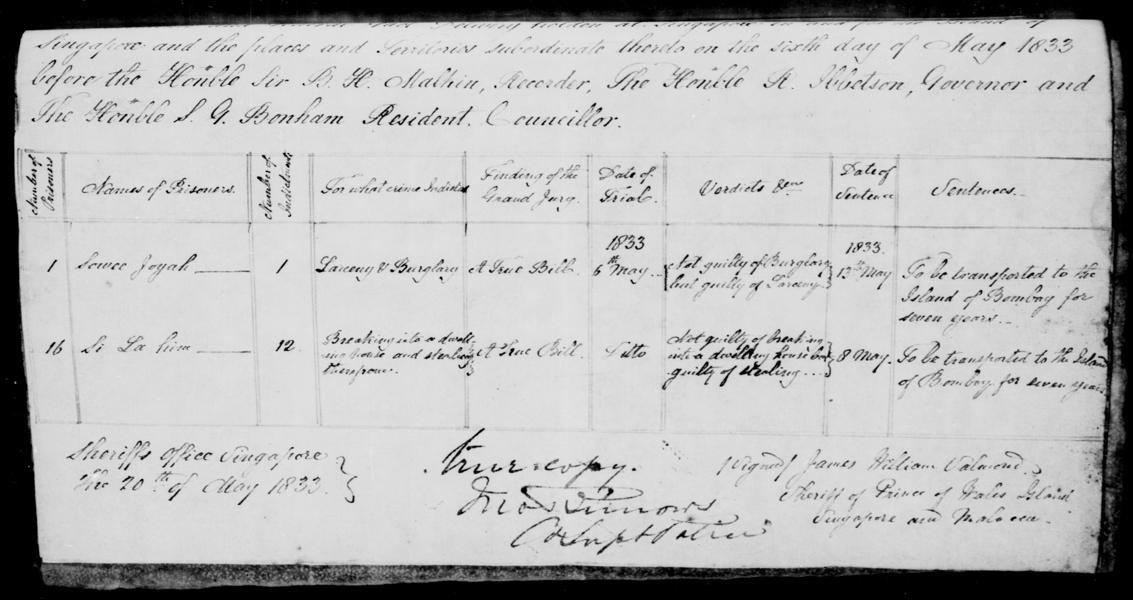 holden at Singapore in and for the Island of
Singapore and the places and Territories subordinate thereto on the sixth day of May 1833
before the Honble Sir B. H. Malkin, Recorder, The Honble R. Ibbetson, Governor and
The Honble S. G. Bonham Resident. Councillor.
Number of Prisoners
Names of Prisoners.
Number of Indictments
For what crime Indicted
Finding of the Grand Jury.
Date of Trial.
Verdicts &ca
Date of Sentence
Sentences.
1833
1833.
1 Sowee Joyah 1 Larceny & Burglary A True Bill. 6th May. Not guilty of Burglary 13th May To be transported to the
but guilty of Larceny. Island of Bombay for
seven years.
16 Si La him 12. Breaking into a dwell A True Bill. Ditto Not guilty of breaking 8 May. To be transported to the Island
ing house and stealing into a dwelling house but of Bombay for seven years
therefrom. guilty of stealing...
Sheriffs Office Singapore
The 20th of May 1833.
true copy.
(Signed) James William Salmond.
Sheriff of Prince of Wales Island
Singapore and Malacca.